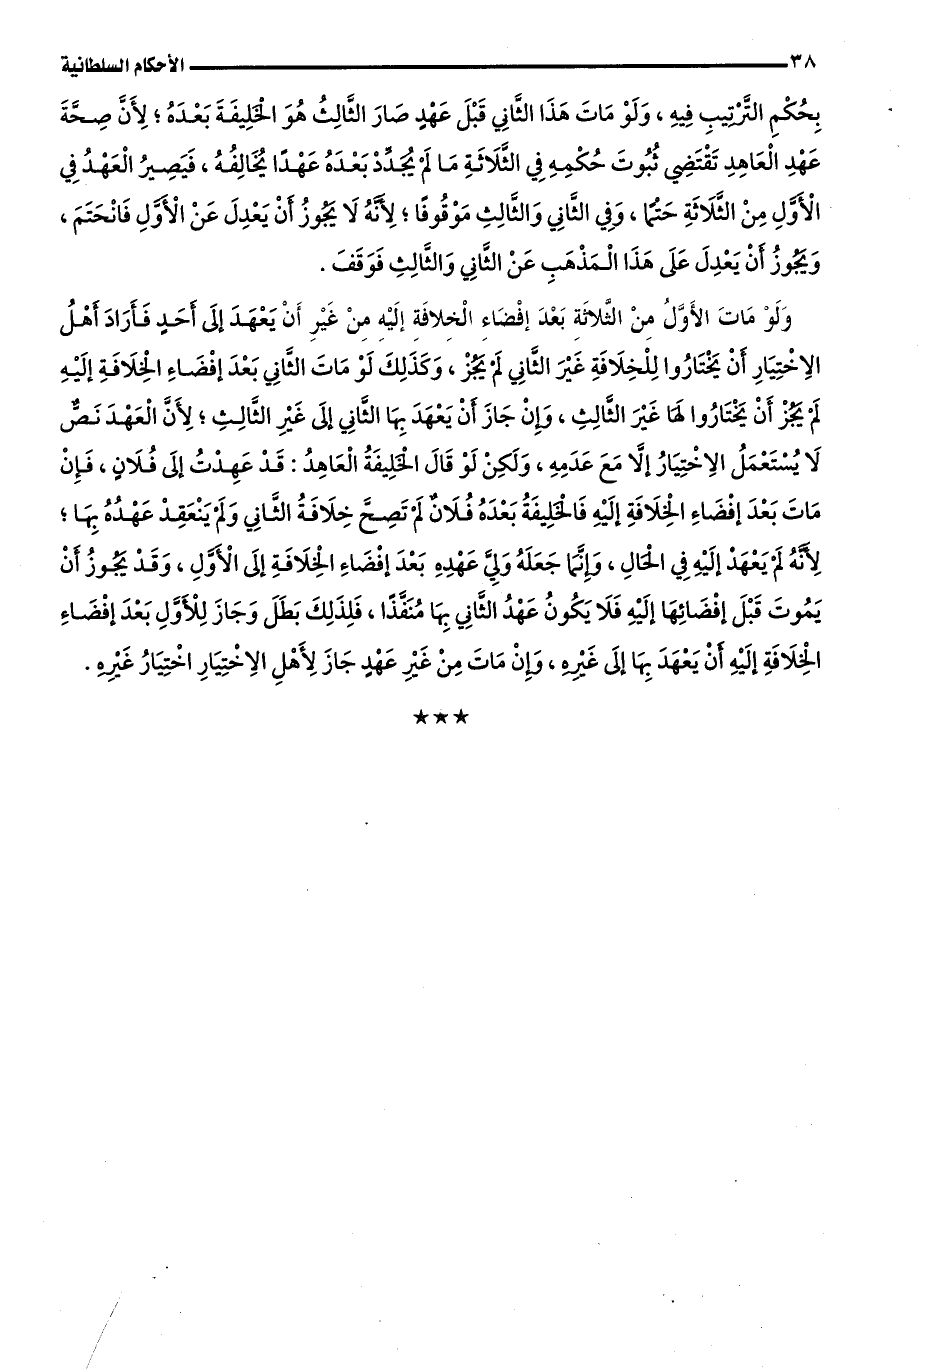 ٣٨ الأحكام السلطانية
بِحُكْمِ التَّرْتِيبِ فِيهِ ، وَلَوْ مَاتَ هَذَا الثَّانِي قَبْلَ عَهْدٍ صَارَ الثَّالِثُ هُوَ الْخَلِيفَةَ بَعْدَهُ ؛ لِأَنَّ صِحَّةَ
عَهْدِ الْعَاهِدِ تَقْتَضِي ثُبُوتَ حُكْمِهِ فِي الثَّلَاثَةِ مَا لَمْ يُجَدِّدْ بَعْدَهُ عَهْدًا يُخَالِفُهُ ، فَيَصِيرُ الْعَهْدُ فِي
الْأَوَّلِ مِنْ الثَّلَاثَةِ حَتْمًا ، وَفِي الثَّانِي وَالثَّالِثِ مَوْقُوفًا ؛ لِأَنَّهُ لَا يَجُوزُ أَنْ يَعْدِلَ عَنْ الْأَوَّلِ فَانْحَتَمَ ،
وَيَجُوزُ أَنْ يَعْدِلَ عَلَى هَذَا الْمَذْهَبِ عَنْ الثَّانِي وَالثَّالِثِ فَوَقَفَ .
وَلَوْ مَاتَ الْأَوَّلُ مِنْ الثَّلَاثَةِ بَعْدَ إفْضَاءِ الْخِلَافَةِ إلَيْهِ مِنْ غَيْرِ أَنْ يَعْهَدَ إلَى أَحَدٍ فَأَرَادَ أَهْلُ
الِاخْتِيَارِ أَنْ يَخْتَارُوا لِلْخِلَافَةِ غَيْرَ الثَّانِي لَمْ يَجُزْ ، وَكَذَلِكَ لَوْ مَاتَ الثَّانِي بَعْدَ إفْضَاءِ الْخِلَافَةِ إلَيْهِ
لَمْ يَجُزْ أَنْ يَخْتَارُوا لَهَا غَيْرَ الثَّالِثِ ، وَإِنْ جَازَ أَنْ يَعْهَدَ بِهَا الثَّانِي إلَى غَيْرِ الثَّالِثِ ؛ لِأَنَّ الْعَهْدَ نَصٌّ
لَا يُسْتَعْمَلُ الِاخْتِيَارُ إلَّا مَعَ عَدَمِهِ ، وَلَكِنْ لَوْ قَالَ الْخَلِيفَةُ الْعَاهِدُ : قَدْ عَهِدْتُ إلَى فُلَانٍ ، فَإِنْ
مَاتَ بَعْدَ إفْضَاءِ الْخِلَافَةِ إلَيْهِ فَالْخَلِيفَةُ بَعْدَهُ فُلَانٌ لَمْ تَصِحَّ خِلَافَةُ الثَّانِي وَلَمْ يَنْعَقِدْ عَهْدُهُ بِهَا ؛
لِأَنَّهُ لَمْ يَعْهَدْ إلَيْهِ فِي الْحَالِ ، وَإِنَّمَا جَعَلَهُ وَلِيَّ عَهْدِهِ بَعْدَ إفْضَاءِ الْخِلَافَةِ إلَى الْأَوَّلِ ، وَقَدْ يَجُوزُ أَنْ
يَمُوتَ قَبْلَ إفْضَائِهَا إلَيْهِ فَلَا يَكُونُ عَهْدُ الثَّانِي بِهَا مُنَفَّذًا ، فَلِذَلِكَ بَطَلَ وَجَازَ لِلْأَوَّلِ بَعْدَ إفْضَاءِ
الْخِلَافَةِ إلَيْهِ أَنْ يَعْهَدَ بِهَا إلَى غَيْرِهِ ، وَإِنْ مَاتَ مِنْ غَيْرِ عَهْدٍ جَازَ لِأَهْلِ الِاخْتِيَارِ اخْتِيَارُ غَيْرِهِ .
★★★